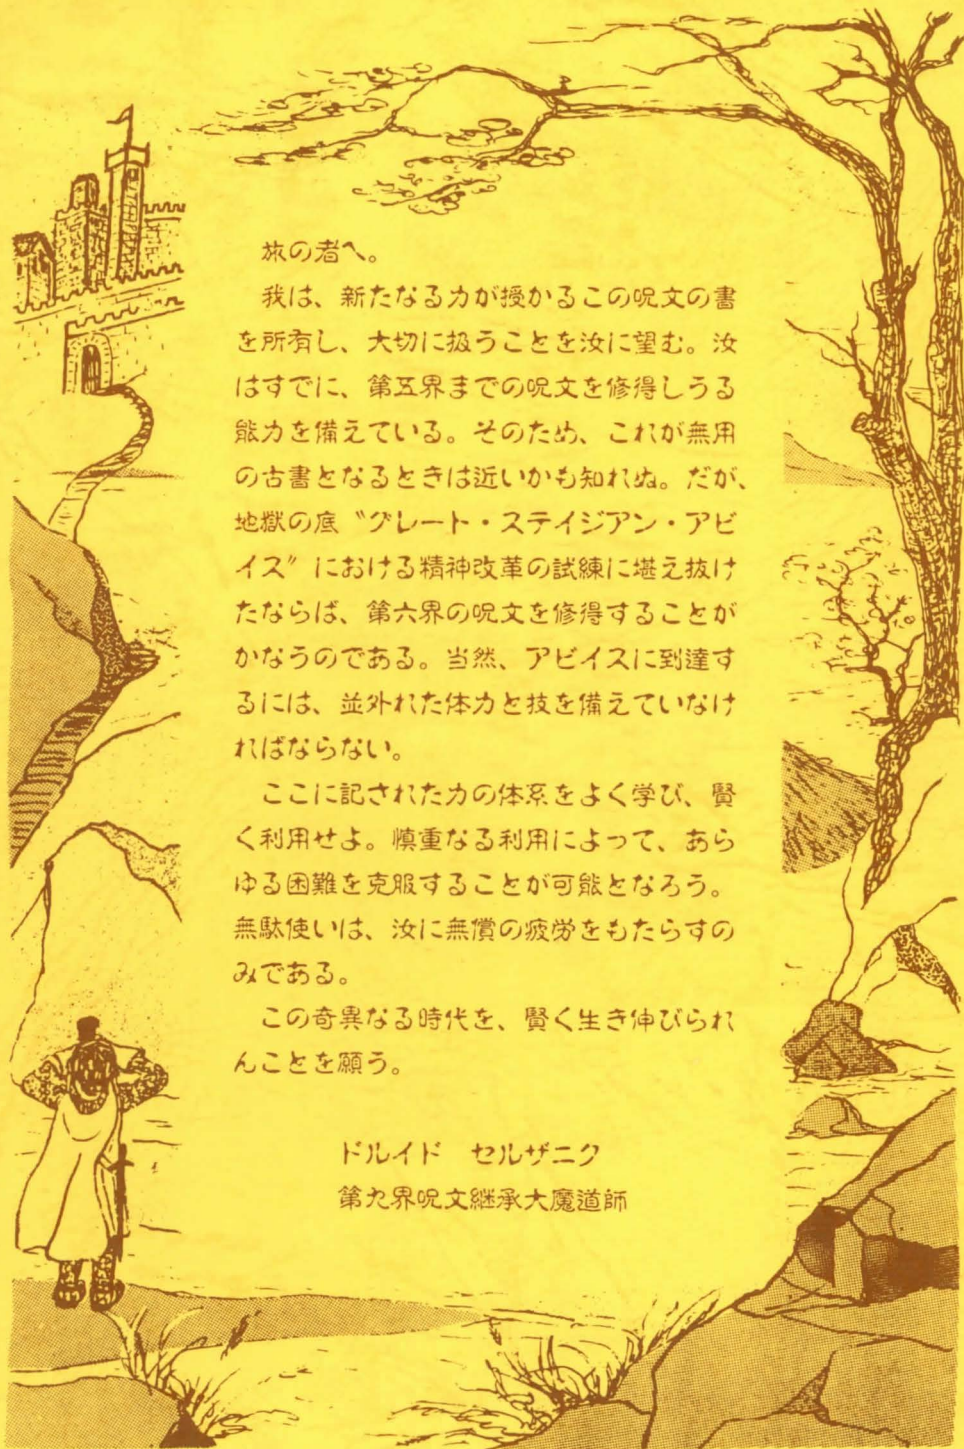 旅の者へ。
我は、新たなる力が授かるこの呪文の書
を所有し、大切に扱うことを汝に望む。汝
はすでに、第五界までの呪文を修得しうる
能力を備えている。そのため、これが無用
の古書となるときは近いかも知れぬ。だが、
地獄の底〝グレート・ステイジアン・アビ
イス〞における精神改革の試練に堪え抜け
たならば、第六界の呪文を修得することが
かなうのである。当然、アビイスに到達す
るには、並外れた体力と技を備えていなけ
ればならない。
ここに記された力の体系をよく学び、賢
く利用せよ。慎重なる利用によって、あら
ゆる困難を克服することが可能となろう。
無駄使いは、汝に無償の疲労をもたらすの
みである。
この奇異なる時代を、賢く生き伸びられ
んことを願う。
ドルイド　セルザニク
第九界呪文継承大魔道師